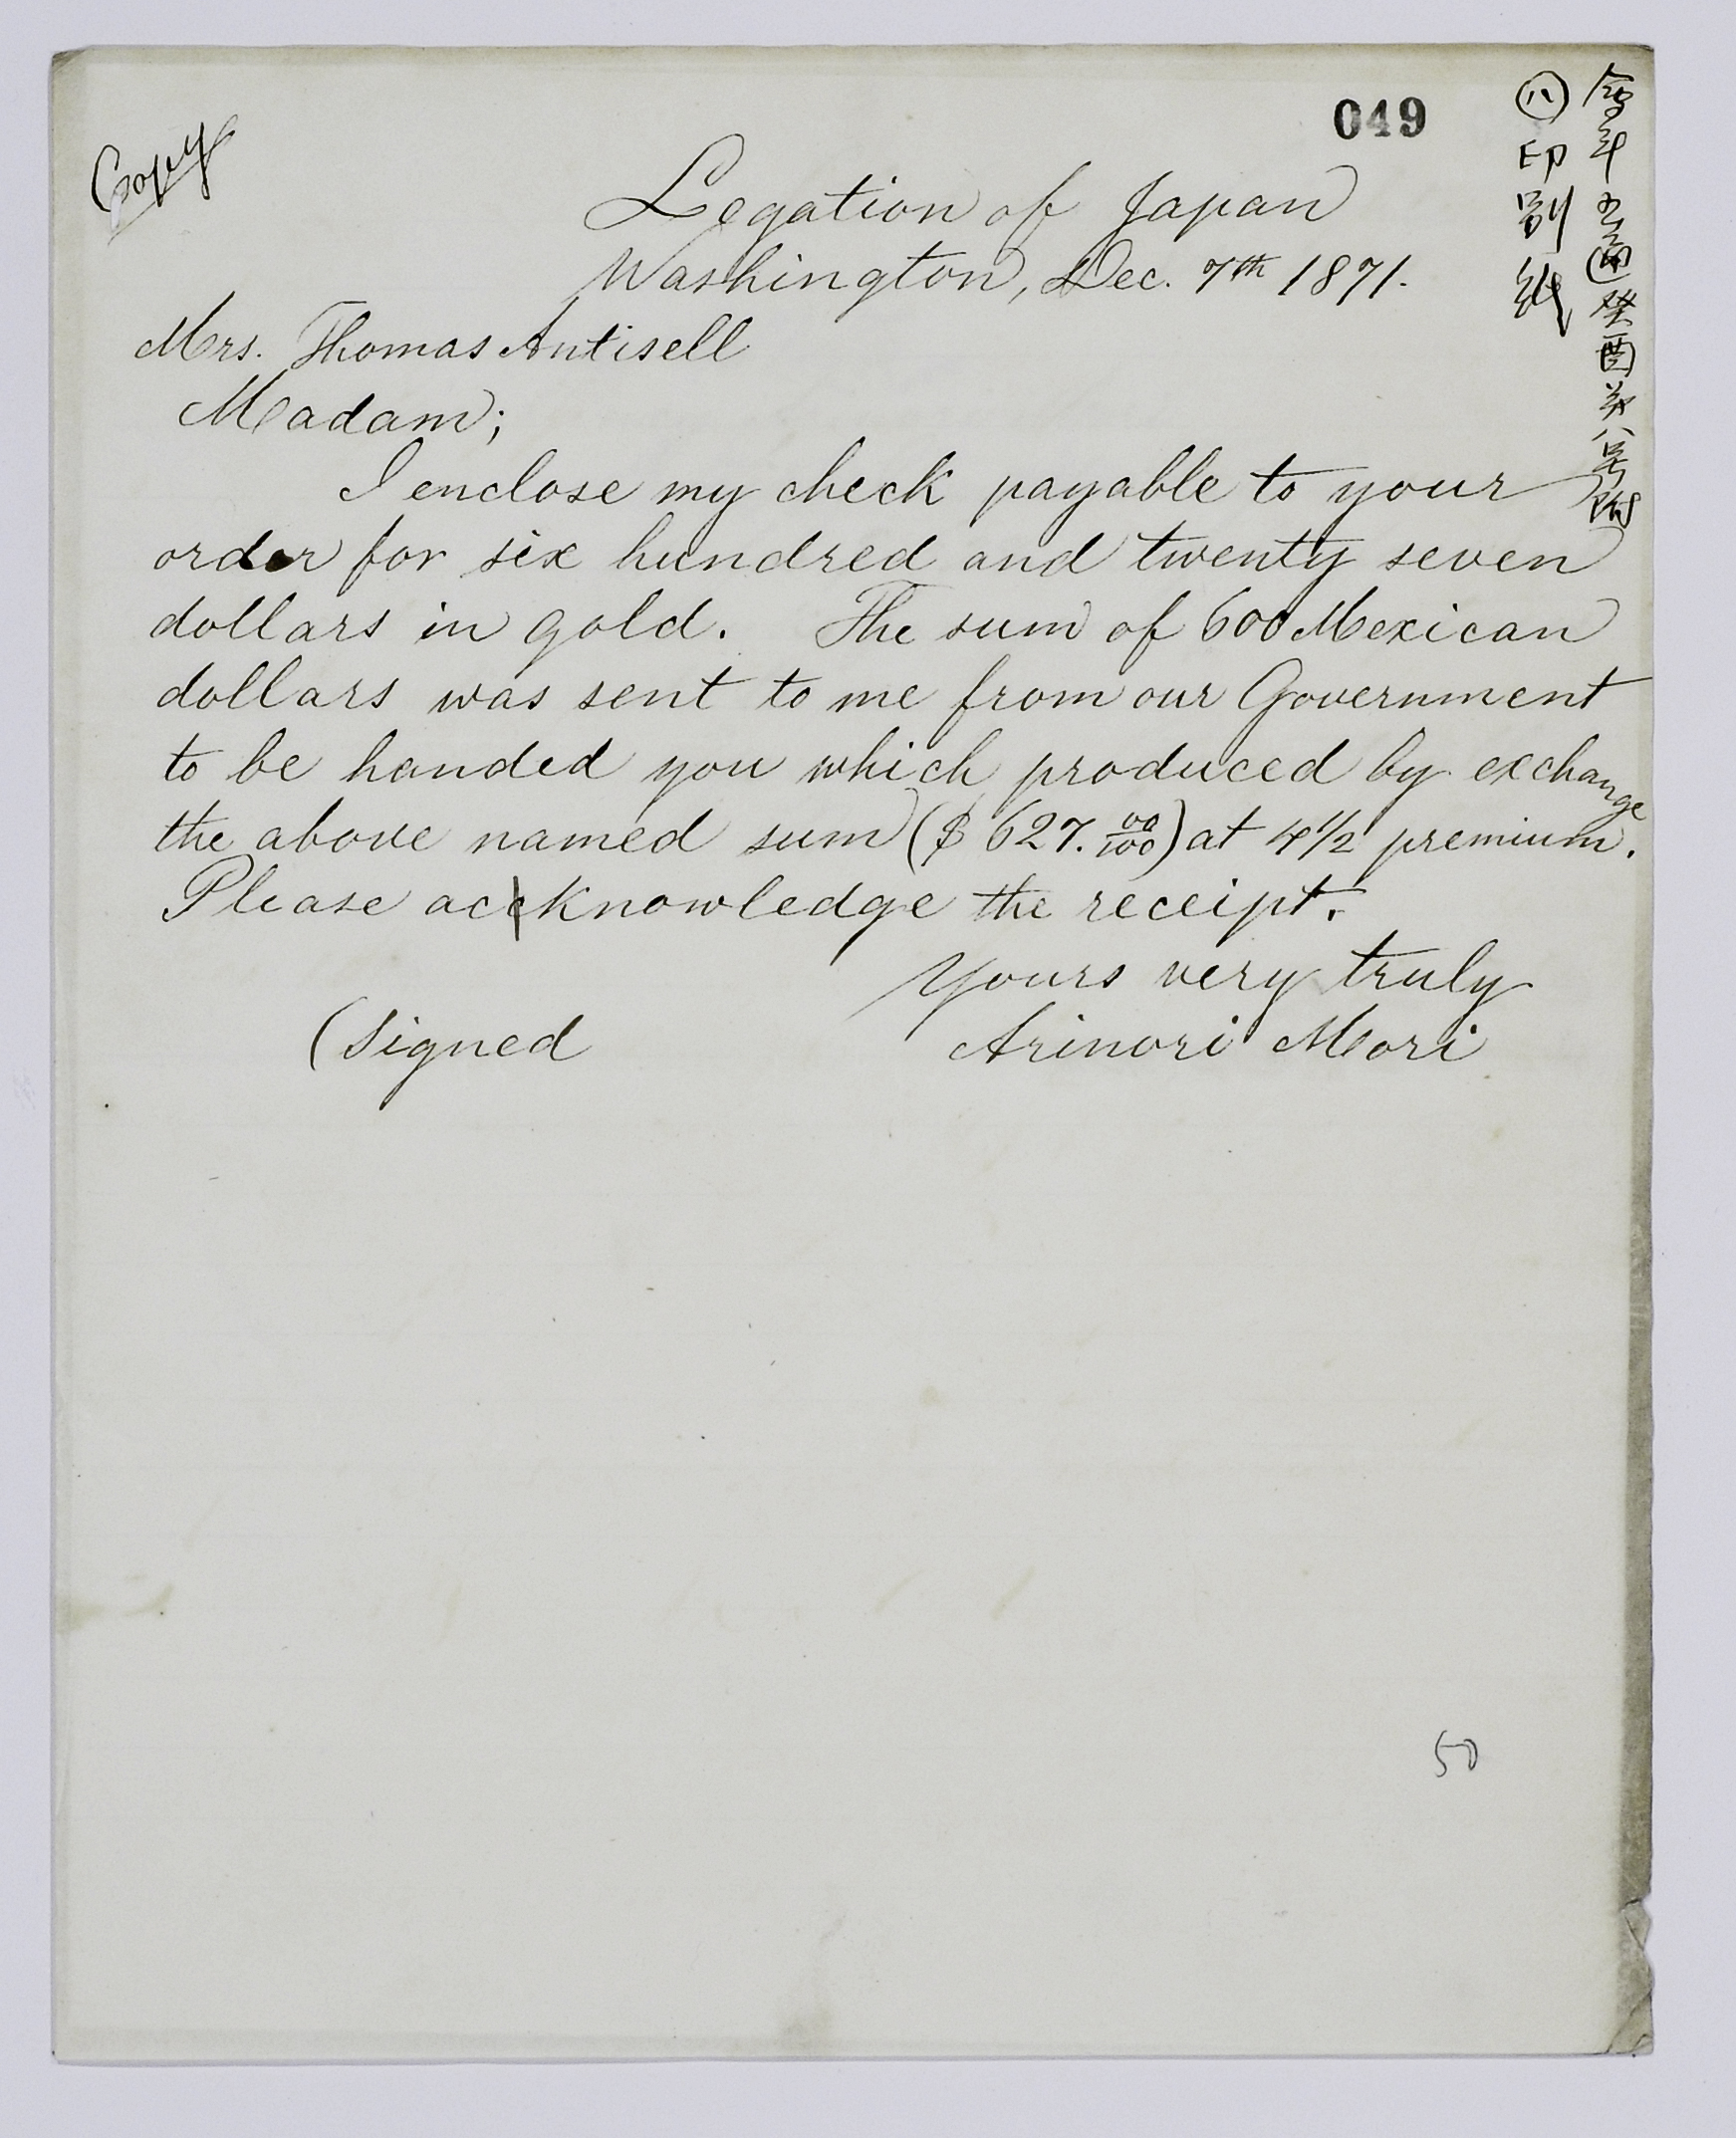 Copy
049
㊇印別紙
癸酉英八号
Legation of Japan
Washington, Dec. 7th 1871.
Mrs. Thomas Antisell
Madam;
I enclose my check payable to your
order for six hundred and twenty seven
dollars in gold. The sum of 600 Mexican
dollars was sent to me from our Government
to be handed you which produced by exchange
the above named sum ($627. 00/100) at 4 1/2 premium.
Please acknowledge the receipt.
Yours very truly
(Signed Arinori Mori
50